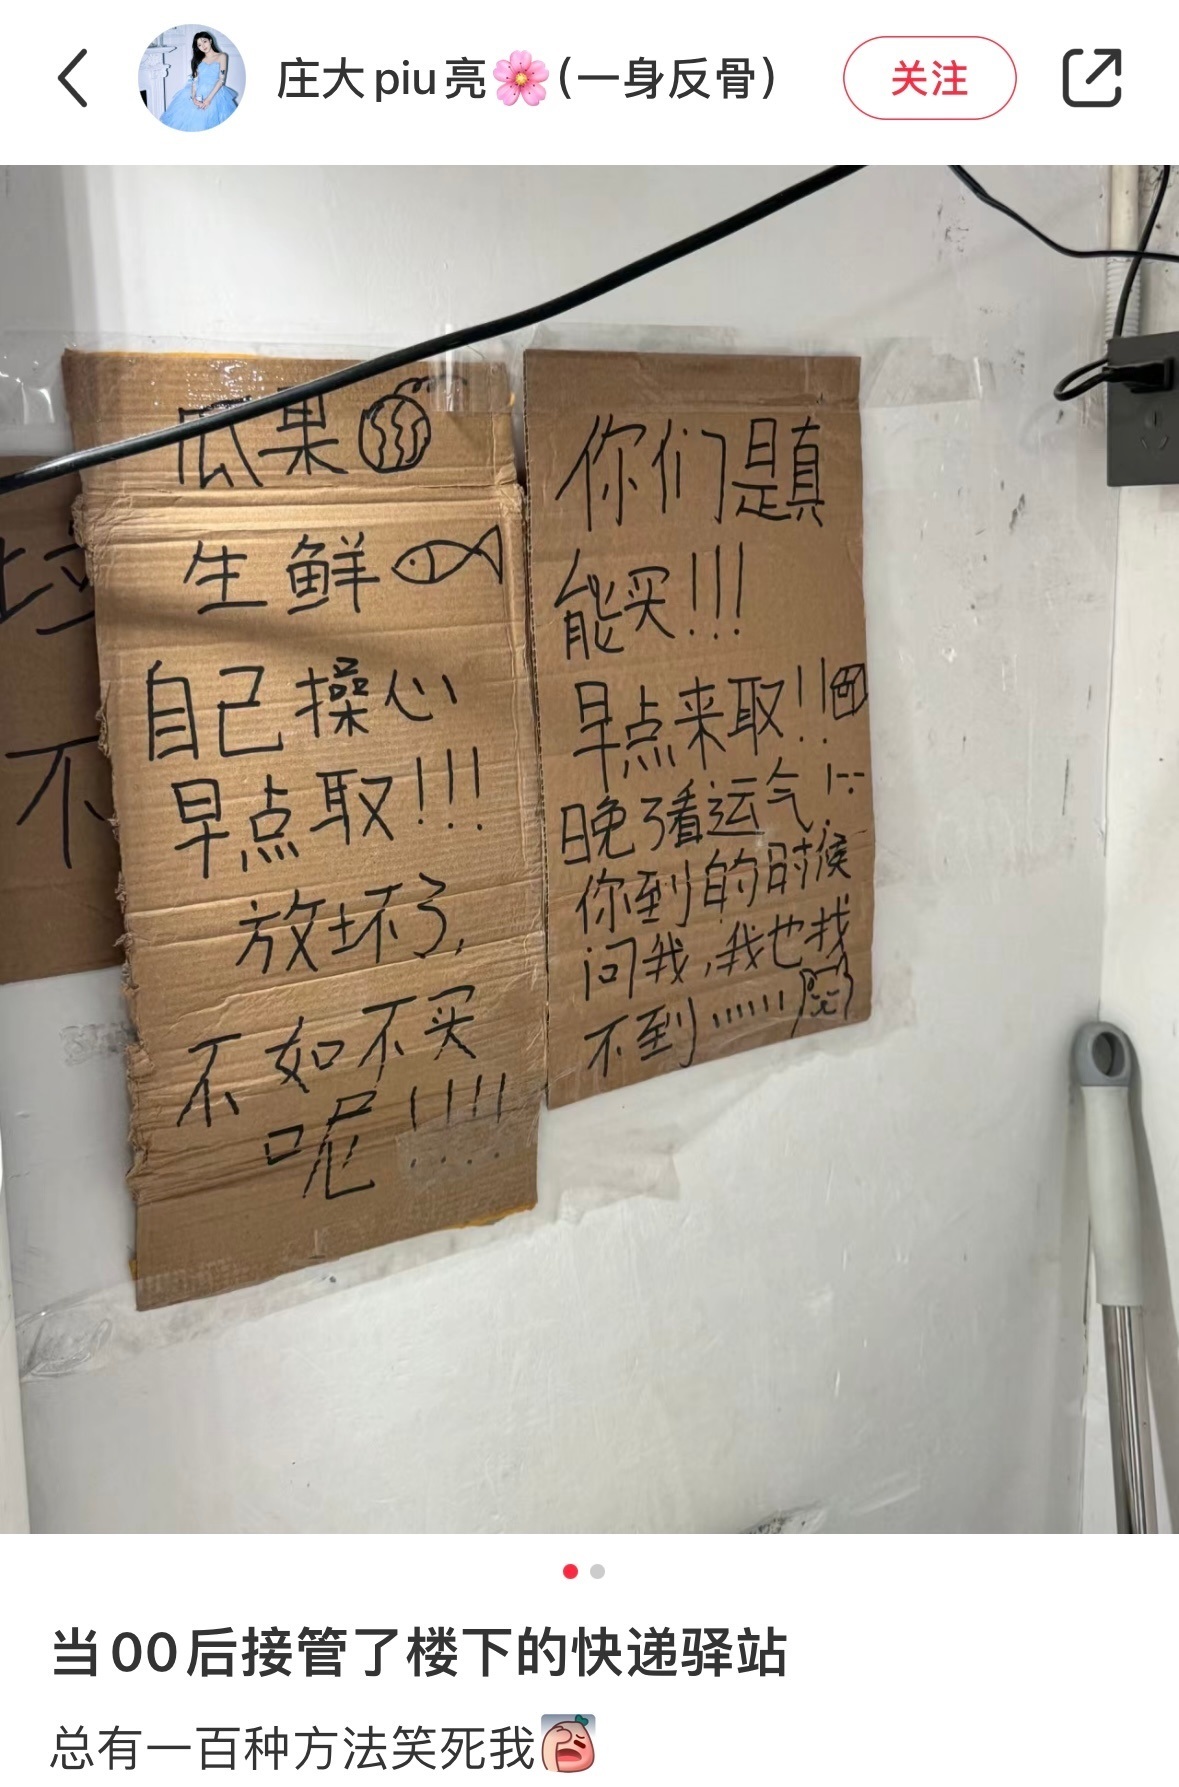 庄大piu亮🌸(一身反骨)
关注
瓜果
生鲜
自己操心
早点取!!!
放坏了,
不如不买
呢!!!!
你们是真
能买!!!
早点来取!!
晚了看运气!
你到的时候
问我,我也找
不到!!!!!!
不
当00后接管了楼下的快递驿站
总有一百种方法笑死我